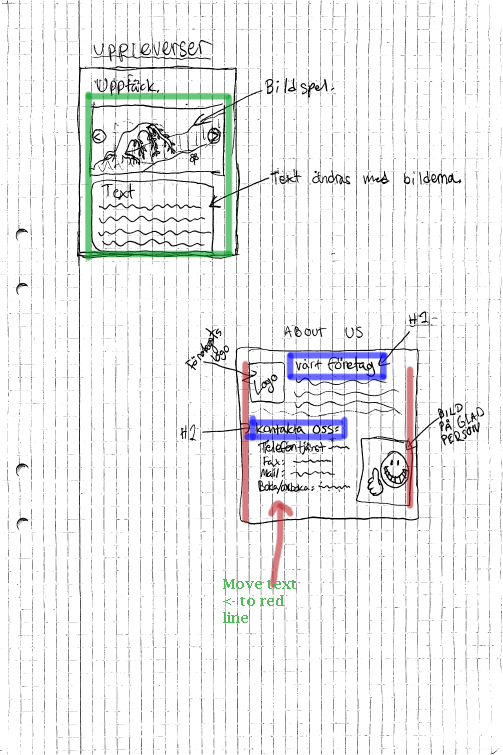 upplevelser
Upptäck.
Bildspel.
Text
Text ändras med bilderna.
ABOUT US
H1
Företagets
logo
Logo
vårt företag
H1
Kontakta oss:
Telefontjänst
Fax:
Mail:
Boka/avboka:
BILD
PÅ GLAD
PERSON
Move text
<- to red
line